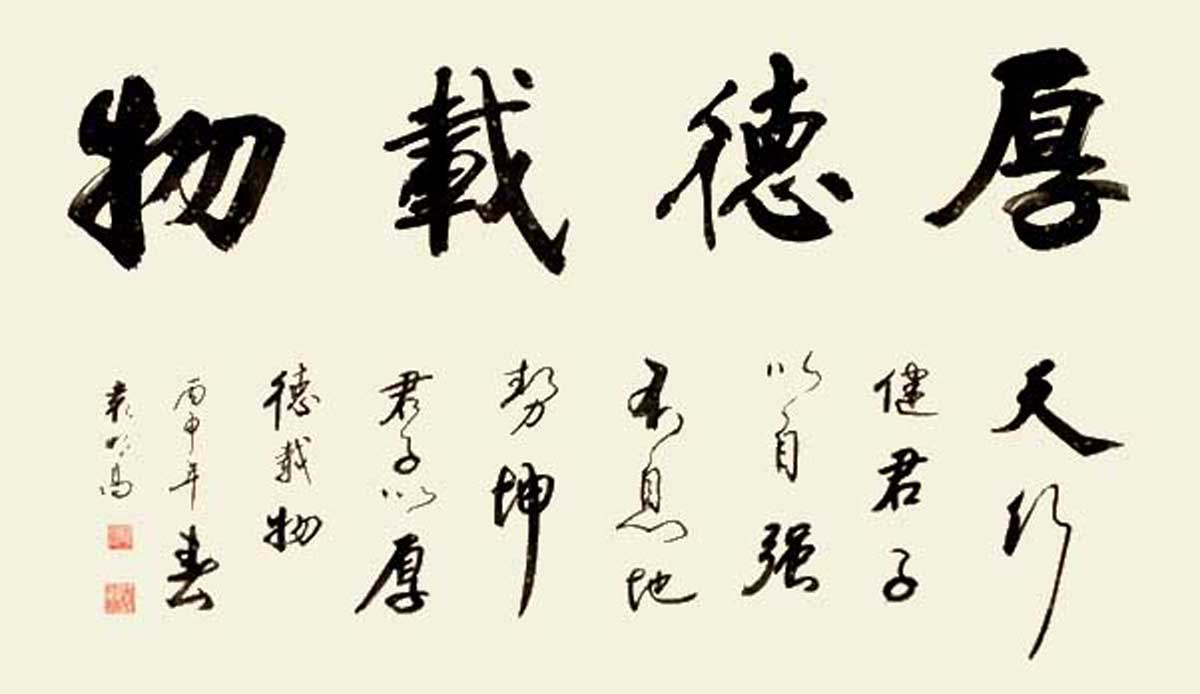 厚德載物
天行
健君子
以自强
不息地
勢坤
君子以厚
德載物
丙申年春
高